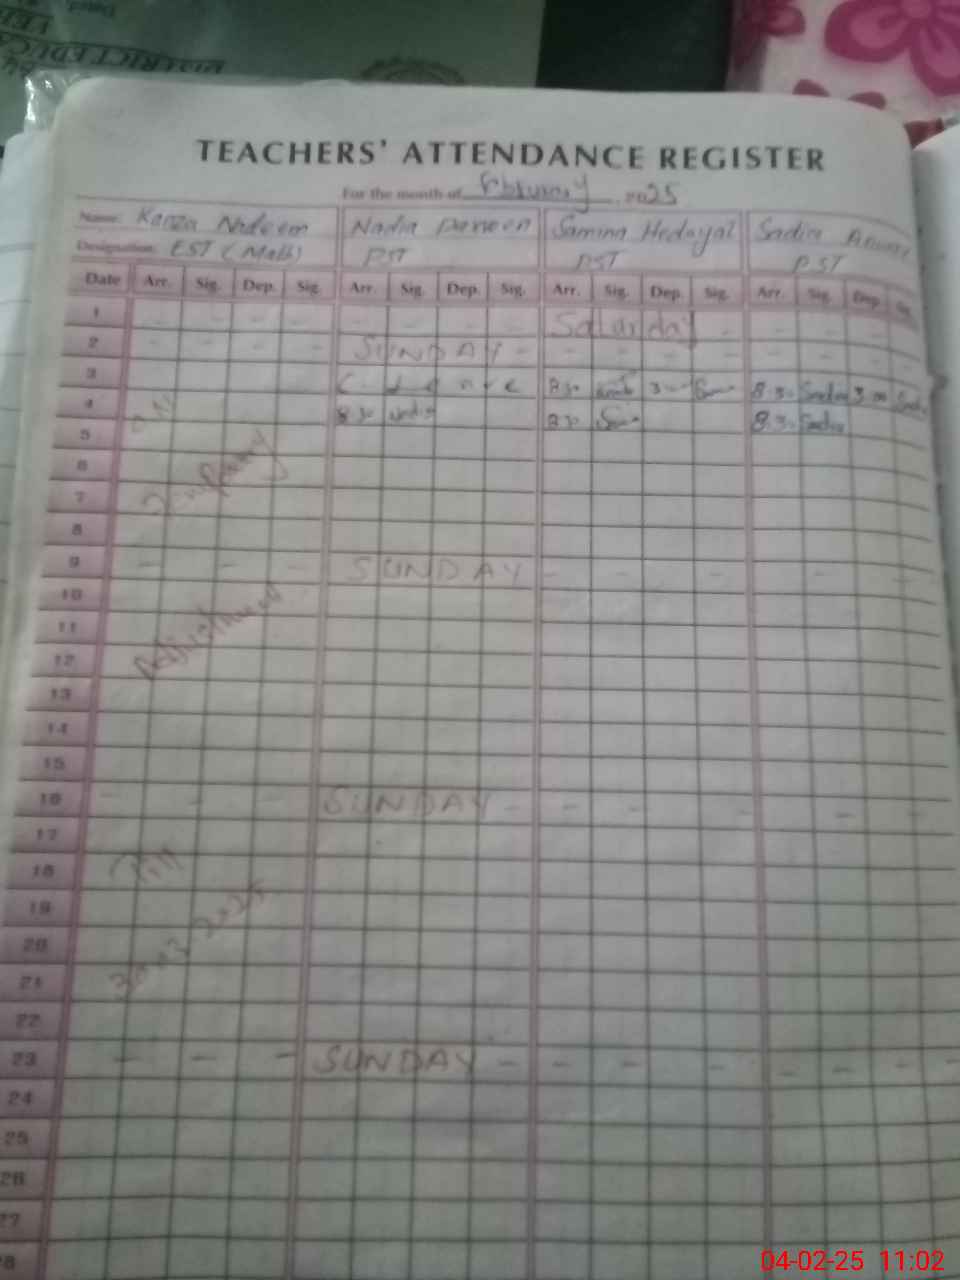 DISTRICT EDUCA
TEACHERS' ATTENDANCE REGISTER
For the month of February, 2025
Name: Kanza Nadeem Nadia Parveen Samina Hedayat Sadia
Designation: EST (Math) PST PST PST
Date Arr. Sig. Dep. Sig. Arr. Sig. Dep. Sig. Arr. Sig. Dep. Sig. Arr. Sig. Dep. Sig.
1 - - - - - - - - Saturday - - - - -
2 - - - - SUNDAY - - - - - - - - -
3 C. Leave 8:30 3:00 8:30 Sadia 3:00 Sadia
4 ON 8:30 Nadia 8:30 8:30 Sadia
5
6 Temporary
7
8
9 - - - SUNDAY - - - - -
10
11 Adjustment
12
13
14
15
16 - - - SUNDAY - - - - - -
17
18 Till
19
20 30-03-2025
21
22
23 - - - SUNDAY - - - - - - - -
24
25
26
27
28
04-02-25 11:02